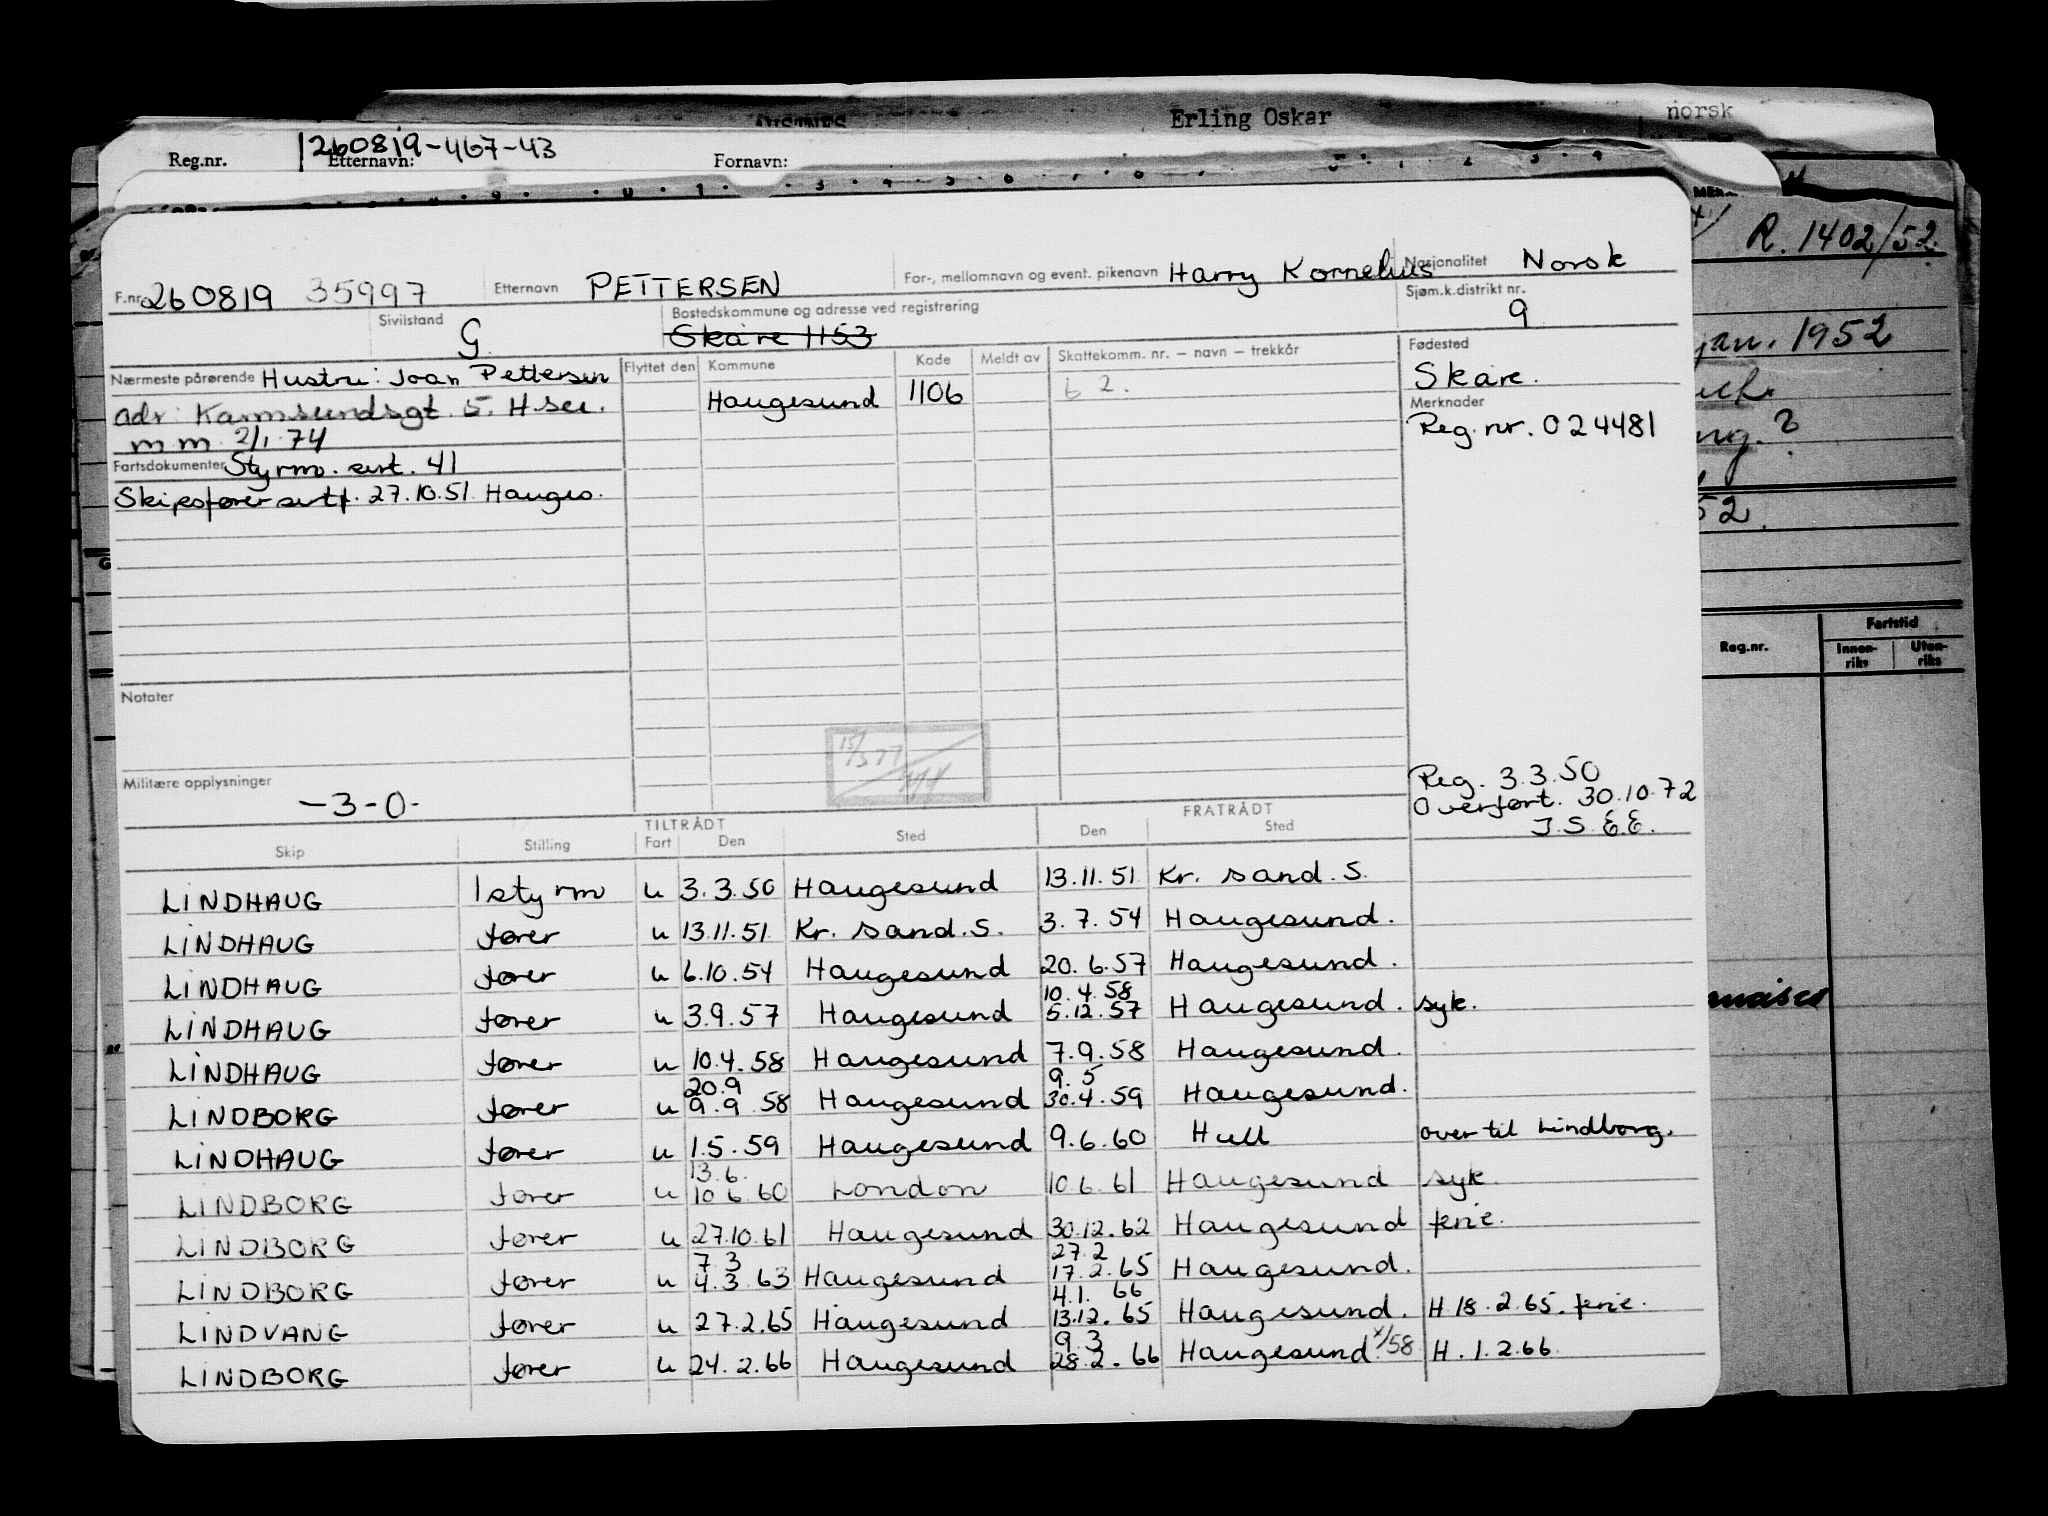 Erling Oskar norsk
260819-467-43
Reg.nr. Etternavn: Fornavn:
R. 1402/52.
jan. 1952
52.
Reg.nr. Fartstid
Innen-riks Uten-riks
F.nr. 260819 35997 Etternavn PETTERSEN For-, mellomnavn og event. pikenavn Harry Kornelius Nasjonalitet Norsk
Sivilstand G Bostedskommune og adresse ved registrering Skåre 1153 Sjøm.k.distrikt nr. 9
Nærmeste pårørende Hustru: Joan Pettersen Flyttet den Kommune Kode Meldt av Skattekomm. nr. – navn – trekkår Fødested
adr: Karmsundsgt. 5. H.su. Haugesund 1106 62. Skåre.
m m 2/1.74 Merknader
Reg.nr. 024481
Fartsdokumenter Styrm. sert. 41
Skipsfører sertf. 27.10.51 Hauges.
Notater
15/3 77
Militære opplysninger
-3-0-
Reg. 3.3.50
Overført. 30.10.72
J.S. E.E.
TILTRÅDT FRATRÅDT
Skip Stilling Fart Den Sted Den Sted
LINDHAUG 1styrm u 3.3.50 Haugesund 13.11.51 Kr. sand. S.
LINDHAUG fører u 13.11.51 Kr. sand. S. 3.7.54 Haugesund.
LINDHAUG fører u 6.10.54 Haugesund 20.6.57 Haugesund.
10.4.58
LINDHAUG fører u 3.9.57 Haugesund 5.12.57 Haugesund. syk.
LINDHAUG fører u 10.4.58 Haugesund 7.9.58 Haugesund.
20.9 9.5
LINDBORG fører u 9.9.58 Haugesund 30.4.59 Haugesund.
LINDHAUG fører u 1.5.59 Haugesund 9.6.60 Hull over til Lindborg.
13.6.
LINDBORG fører u 10.6.60 London 10.6.61 Haugesund syk.
LINDBORG fører u 27.10.61 Haugesund 30.12.62 Haugesund ferie.
7.3 27.2
LINDBORG fører u 4.3.63 Haugesund 17.2.65 Haugesund.
4.1. 66
LINDVANG fører u 27.2.65 Haugesund 13.12.65 Haugesund. H 18.2.65. ferie.
9.3
LINDBORG fører u 24.2.66 Haugesund 28.2.66 Haugesund x/58 H.1.2.66.